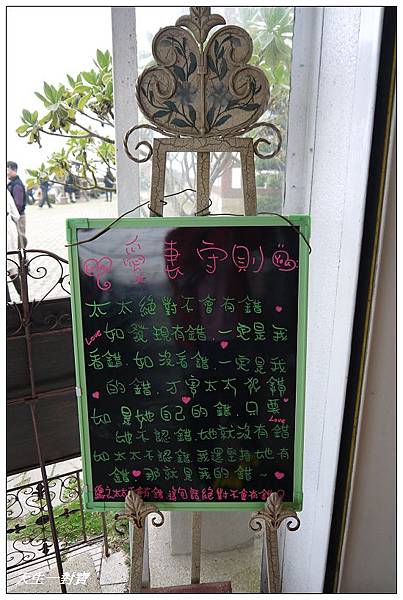 愛妻守則 You
太太絕對不會有錯
Love 如發現有錯.一定是我
看錯.如沒看錯.一定是我
的錯.才害太太犯錯
如是她自己的錯.只要
Love
她不認錯.她就沒有錯
如太太不認錯.我還堅持她有
錯.那就是我的錯
總之太太不會有錯.這句話絕對不會有錯
人生一對寶